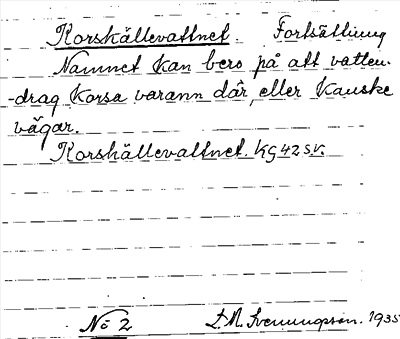 Korskällevattnet. Fortsättning
Namnet kan bero på att vatten-
-drag korsa varann där, eller kanske
vägar.
Korskällevattnet. KG 42 S.V.
No 2 L.M. Svenungsson. 1935